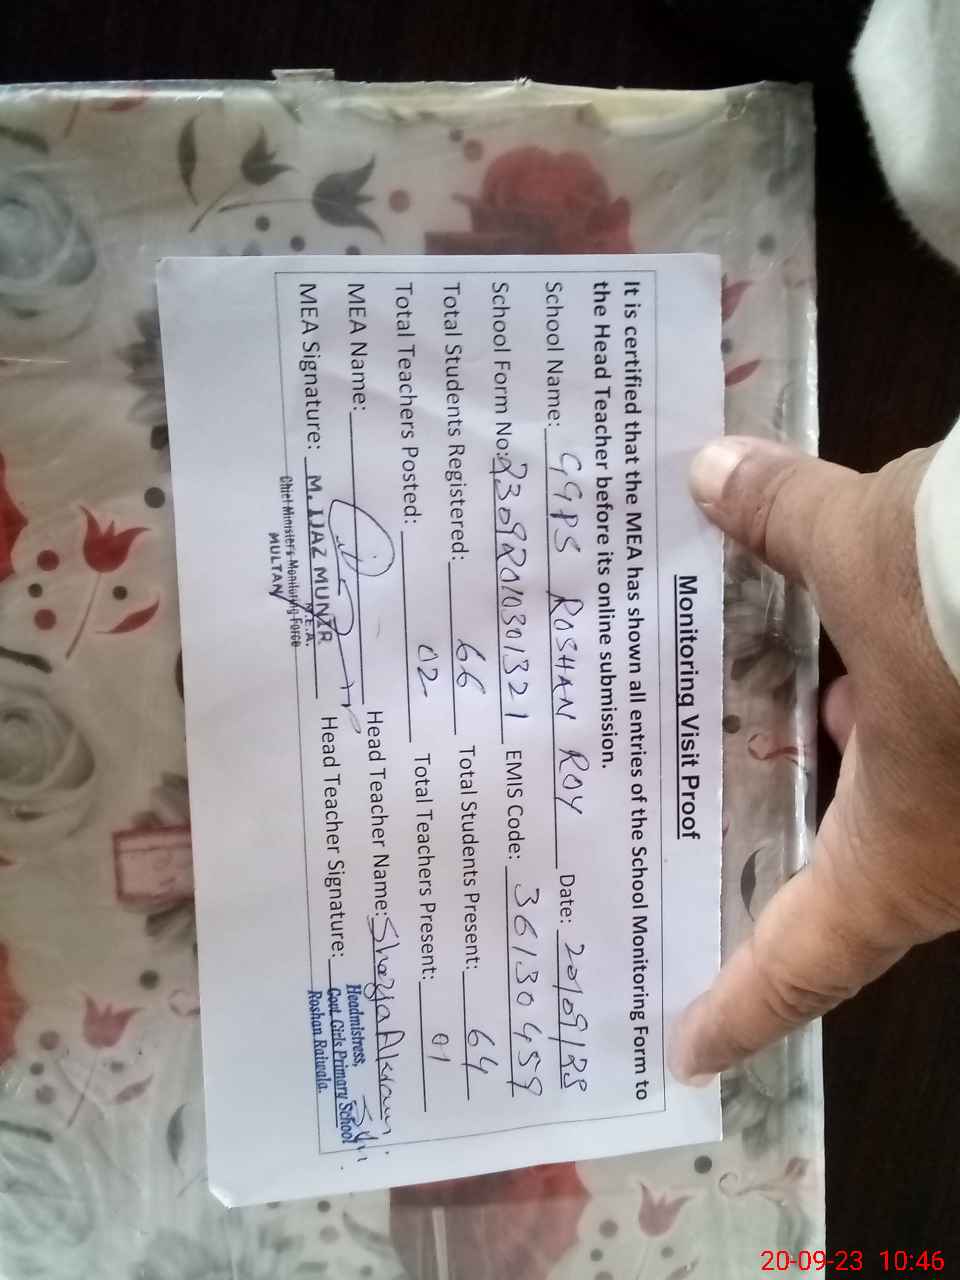 Monitoring Visit Proof
It is certified that the MEA has shown all entries of the School Monitoring Form to
the Head Teacher before its online submission.
School Name: GGPS ROSHAN ROY Date: 20/09/23
School Form No: 23092010301321 EMIS Code: 36130459
Total Students Registered: 66 Total Students Present: 64
Total Teachers Posted: 02 Total Teachers Present: 01
MEA Name: Head Teacher Name: Shazia Akram
MEA Signature: M. IJAZ MUNIR Head Teacher Signature:
M.E.A.
Chief Ministers Monitoring Force
MULTAN
Headmistress,
Govt. Girls Primary School
Roshan Raiwala.
20-09-23 10:46